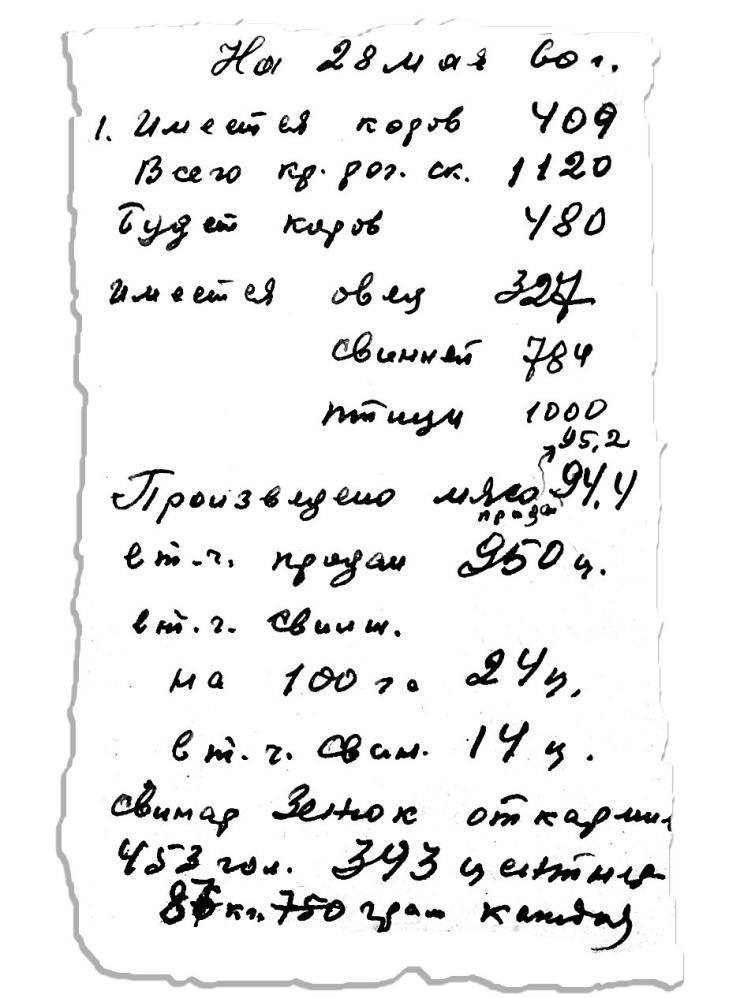 На 28 мая 60 г.
1. Имеется коров 409
Всего кр. рог. ск. 1120
Будет коров 480
Имеется овец 327
Свинней 784
птицы 1000
95,2
Произведено мясо 94,4
продан
в т.ч. продан 950 ц.
в т.ч. Свин.
на 100 га 24 ц.
в т.ч. Свин. 14 ц.
Свинар Зенюк откармли
453 гол. 393 центнер
кг. 750 грам каждая